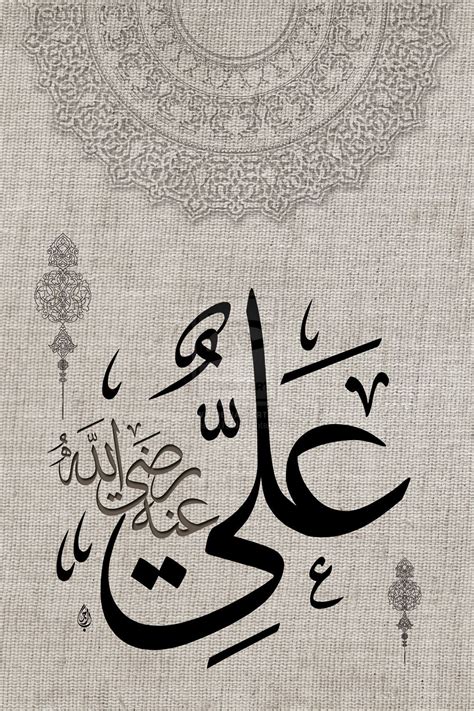 عَلِيٌّ
رَضِيَ اللهُ عنه